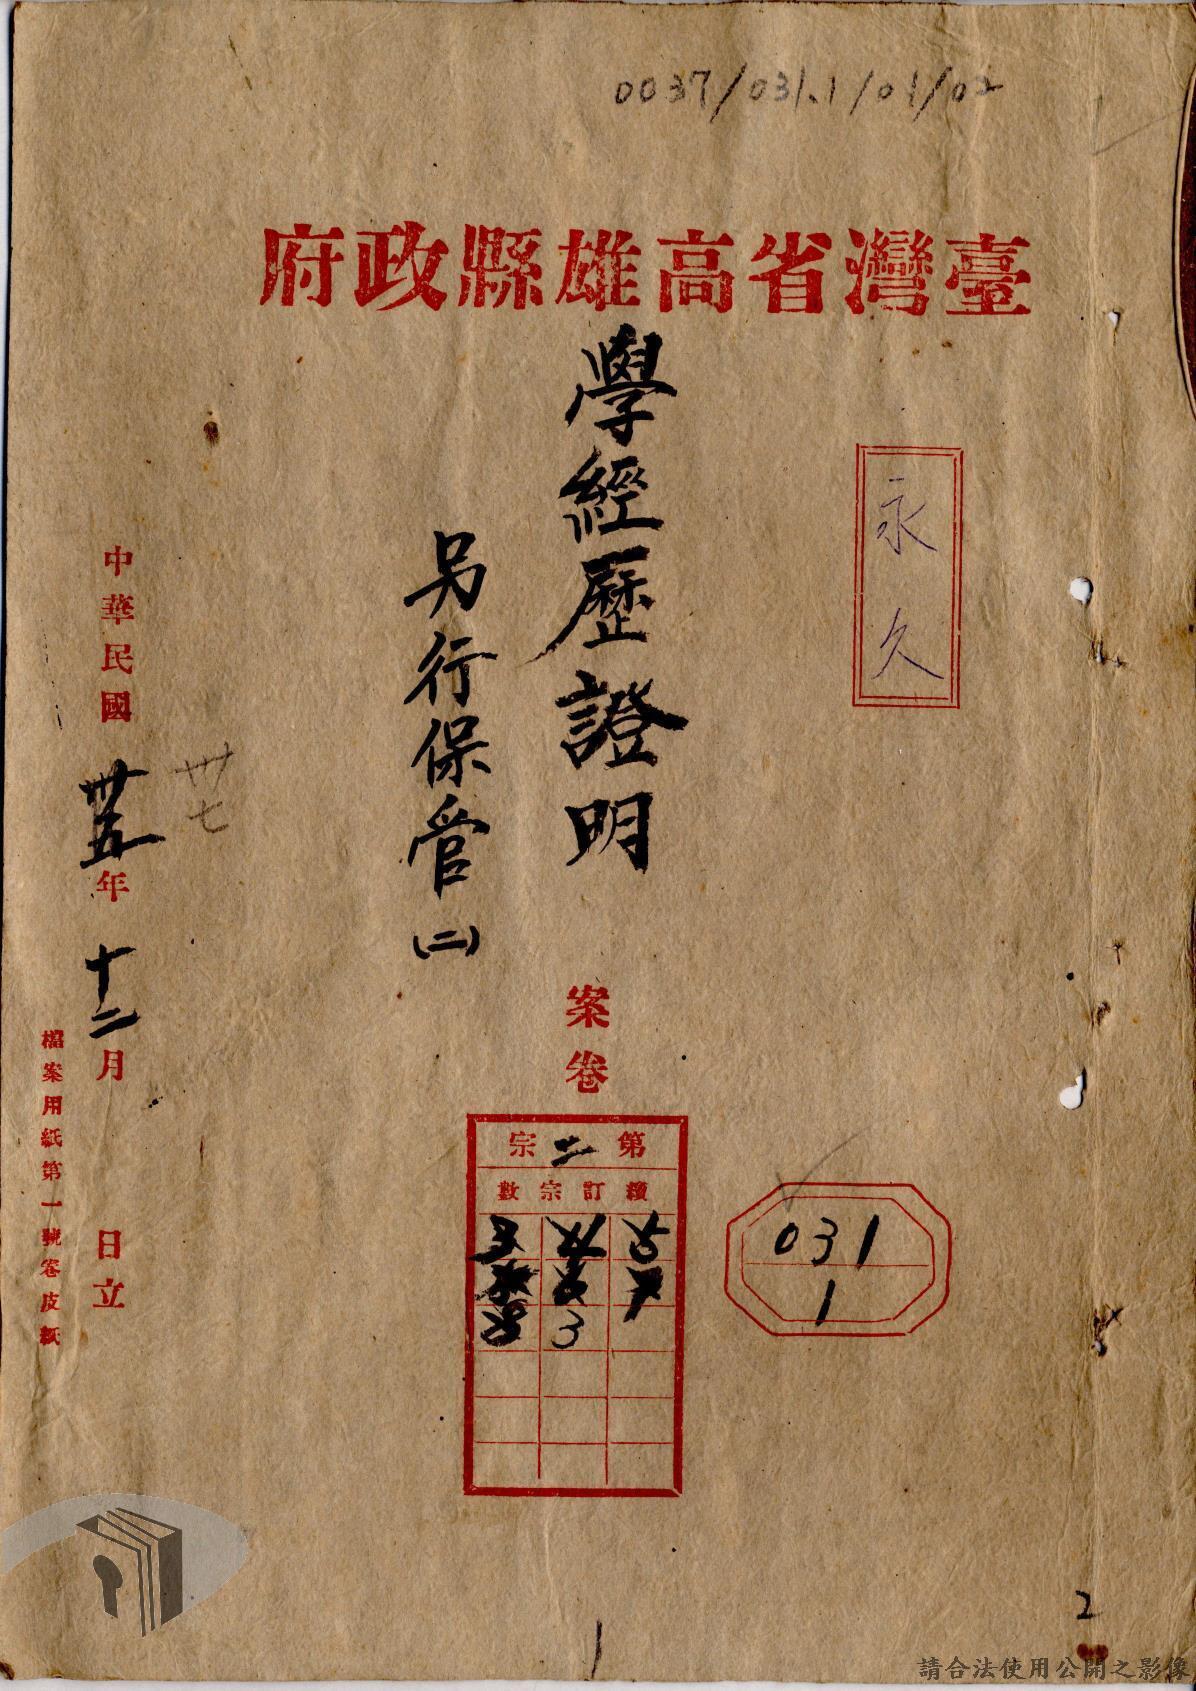 0037/031.1/01/02
臺灣省高雄縣政府
永久
學經歷證明
另行保管(二)
案卷
第二宗
續訂宗數
031
1
卅七
中華民國卅五年十二月 日立
檔案用紙第一號卷皮紙
2
1
請合法使用公開之影像